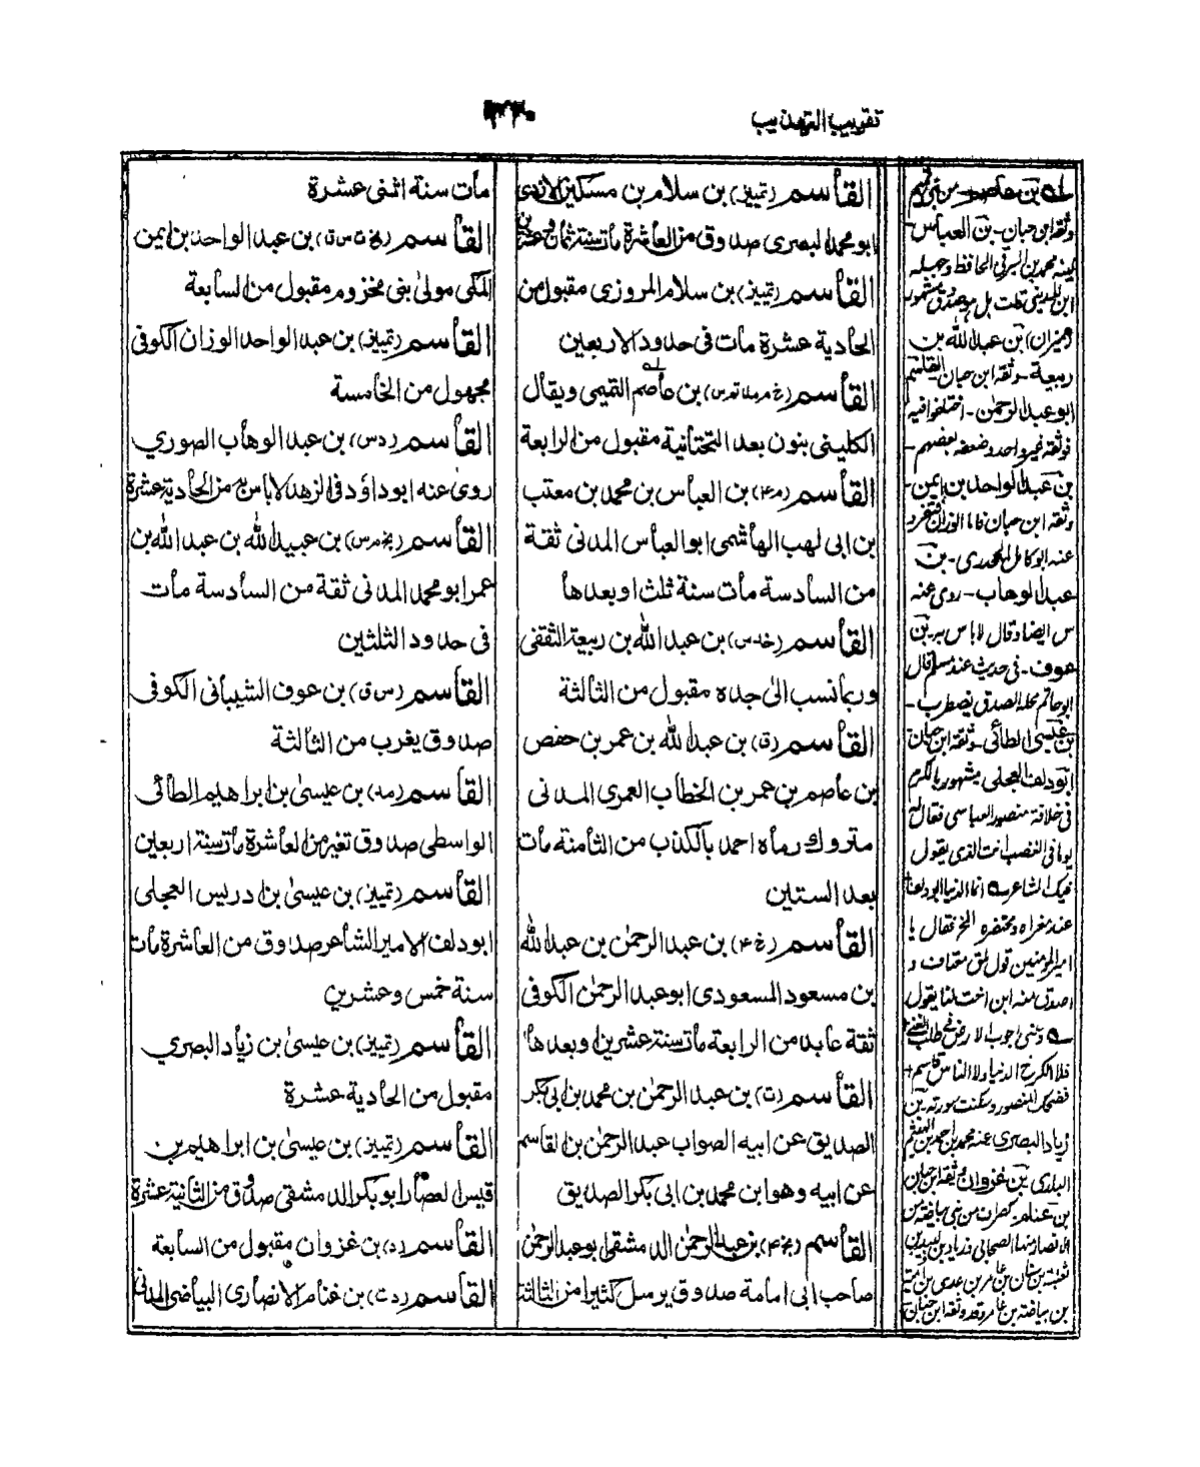 تقريب التهذيب
القاسم (تمييز) بن سلام بن مسكين الازدى
ابو محمد البصرى صدوق من العاشرة مات سنة ثمان وعشرين
القاسم (تمييز) بن سلام المروزى مقبول من
الحادية عشرة مات فى حدود الاربعين
القاسم بن عاصم التميمى ويقال
الكلينى بنون بعد التحتانية مقبول من الرابعة
القاسم (م۴) بن العباس بن محمد بن معتب
بن ابى لهب الهاشمى ابو العباس المدنى ثقة
من السادسة مات سنة ثلث او بعدها
القاسم (خدس) بن عبد الله بن ربيعة الثقفى
وربما نسب الى جده مقبول من الثالثة
القاسم (ق) بن عبد الله بن عمر بن حفص
بن عاصم بن عمر بن الخطاب العمرى المدنى
متروك رماه احمد بالكذب من الثامنة مات
بعد الستين
القاسم (خ۴) بن عبد الرحمٰن بن عبد الله
بن مسعود المسعودى ابو عبد الرحمٰن الكوفى
ثقة عابد من الرابعة مات سنة عشرين او بعدها
القاسم (ت) بن عبد الرحمٰن بن محمد بن ابى بكر
الصديق عن ابيه الصواب عبد الرحمٰن بن القاسم
عن ابيه وهو ابن محمد بن ابى بكر الصديق
القاسم (بخ۴) بن عبد الرحمٰن الدمشقى ابو عبد الرحمٰن
صاحب ابى امامة صدوق يرسل كثيرا من الثالثة
مات سنة اثنى عشرة
القاسم (بخ ت س ق) بن عبد الواحد بن ايمن
المكى مولىٰ بنى مخزوم مقبول من السابعة
القاسم (تمييز) بن عبد الواحد الوزان الكوفى
مجهول من الخامسة
القاسم (دس) بن عبد الوهاب الصوري
روىٰ عنه ابو داؤد فى الزهد لا باس به من الحادية عشرة
القاسم (بخ م س) بن عبيد الله بن عبد الله بن
عمر ابو محمد المدنى ثقة من السادسة مات
فى حدود الثلثين
القاسم (س ق) بن عوف الشيبانى الكوفى
صدوق يغرب من الثالثة
القاسم (مد) بن عيسىٰ بن ابراهيم الطائى
الواسطى صدوق تغير من العاشرة مات سنة اربعين
القاسم (تمييز) بن عيسىٰ بن ادريس العجلى
ابو دلف الامير الشاعر صدوق من العاشرة مات
سنة خمس وعشرين
القاسم (تمييز) بن عيسىٰ بن زياد البصري
مقبول من الحادية عشرة
القاسم (تمييز) بن عيسىٰ بن ابراهيم بن
قيس العصار ابو بكر الدمشقى صدوق من الثانية عشرة
القاسم (د) بن غزوان مقبول من السابعة
القاسم (دت) بن غنام الانصارى البياضى المدنى
له بن عاصم من بنى تميم
وثقه ابن حبان - بن العباس -
ابن المدينى قلت بل هو صدوق مشهور
(ميزان) بن عبد الله بن
ربيعة - وثقه ابن حبان القاسم
ابو عبد الرحمٰن - اختلفوا فيه
فوثقه غير واحد وضعفه بعضهم -
بن عبد الواحد بن ايمن -
وثقه ابن حبان فاما الوزان فتفرد
عنه ابو كامل الجحدرى - بن
عبد الوهاب - روى عنه
س ايضا وقال لا باس به - بن
عوف - فى حديث عند مسلم قال
ابو حاتم محله الصدق يضطرب -
بن عيسى الطائى - وثقه ابن حبان
ابو دلف العجلى مشهور بالكرم
يوما فى الغضب انت الذى يقول
فيك الشاعر انما الدنيا ابو دلف
عند مغزاه ومحتضره الخ فقال يا
امير المؤمنين قول
اصدق منه ابن اخت لنا يقول
فضحك المنصور وسكنت سورته - بن
زياد البصرى عنه محمد بن احمد بن الهيثم
البلدى بن غزوان وثقه ابن حبان
بن غنام - من بنى بياضة من
الانصار منها الصحابى زياد بن لبيد بن
ثعلبة بن سنان بن عامر بن عدى بن امية
بن بياضة بن عامر وقد وثقه ابن حبان -